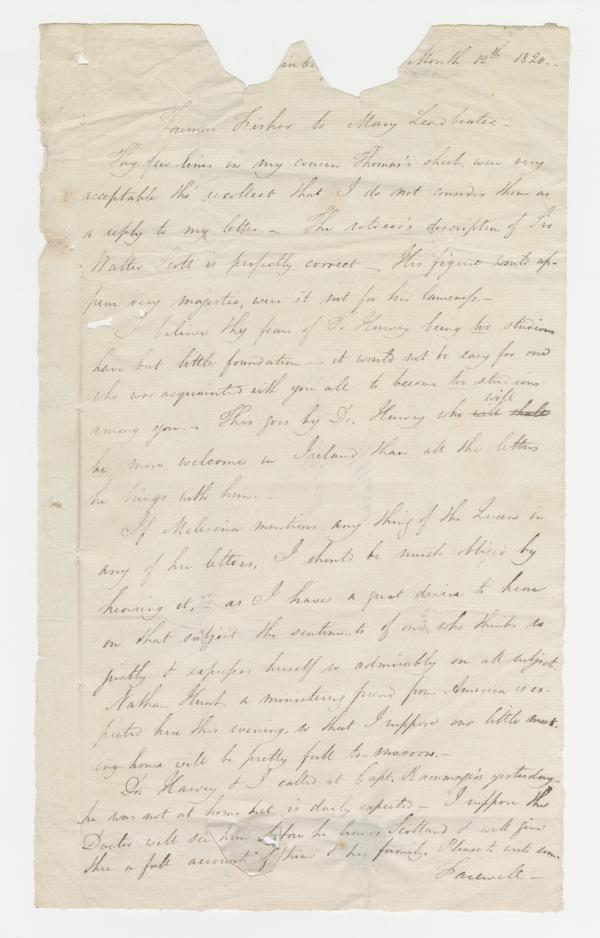 Month 12th 1820.
Fisher to Mary Leadbeater.
Thy few lines in my cousin Thomas's sheet, were very
acceptable tho' recollect that I do not consider them as
a reply to my letter. – The soldier's discription of Sir
Walter Scott is perfectly correct – His figure would ap-
pear very majestic, were it not for his lameness. –
I believe thy fears of Dr Harvey being too studious
have but little foundation – it would not be easy for one
who was acquainted with you all to become too studious
among you. – This goes by Dr. Harvey who will
be more welcome in Ireland than all the letters
he brings with him. –
If Melesina mentions any thing of the Queen in
any of her letters, I should be much obliged by
hearing it, as I have a great desire to hear
on that subject the sentiments of one who thinks so
justly & expresses herself so admirably on all subjects.
Nathan Hunt a ministering friend from America is ex-
pected here this evening, so that I suppose our little meet-
ing house will be pretty full to morrow. –
Dr. Harvey & I called at Capt. yesterday
he was not at home but is daily expected – I suppose the
Doctor will see him before he leaves Scotland & will give
thee a full account of him & his family. Please to write soon
Farewell –